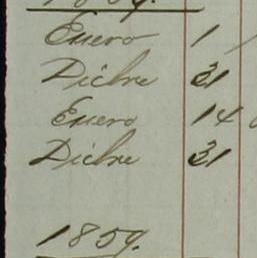 Enero 1
Dicbre 31
Enero 14
Dicbre 31
1859.